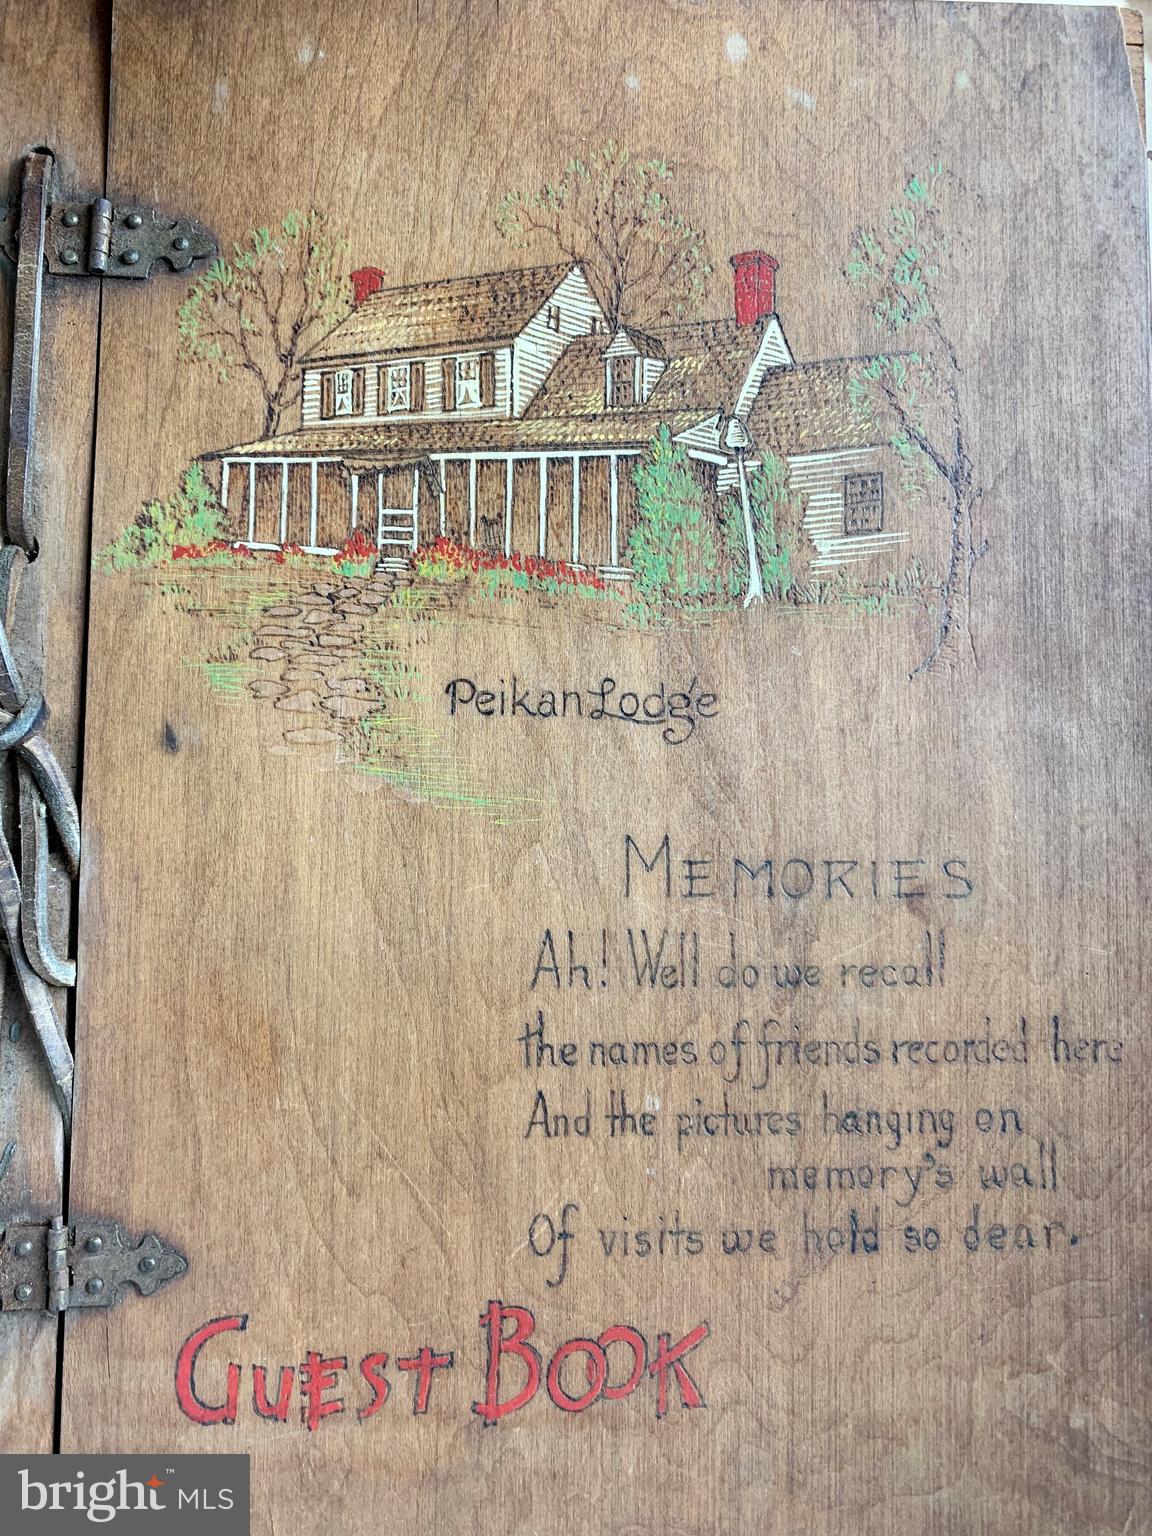 Peikan Lodge
MEMORIES
Ah! Well do we recall
the names of friends recorded here
And the pictures hanging on
memory's wall
Of visits we hold so dear.
GUEST BOOK
bright™ MLS